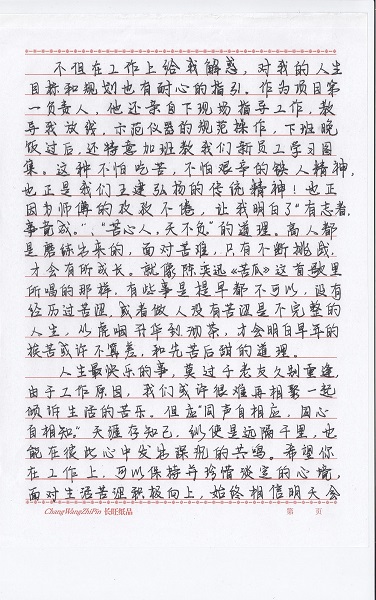 不但在工作上给我解惑，对我的人生
目标和规划也有耐心的指引。作为项目第
一负责人，他还亲自下现场指导工作，教
导我放线，示范仪器的规范操作，下班晚
饭过后，还特意加班教我们新员工学习图
集。这种不怕吃苦，不怕艰辛的铁人精神，
也正是我们王建弘扬的传统精神！也正
因为师傅的孜孜不倦，让我明白了"有志者，
事竟成。"、"苦心人，天不负"的道理。高人都
是磨练出来的，面对苦难，只有不断挑战，
才会有所成长。就像陈奕迅《苦瓜》这首歌里
所唱的那样，有些事是提早都不可以，没有
经历过苦涩，或者做人没有苦涩是不完整的
人生，以虎咽升华到沏茶，才会明白早年的
挨苦或许不算差，和先苦后甜的道理。
人生最快乐的事，莫过于老友久别重逢，
由于工作原因，我们或许很难再相聚一起
倾诉生活的苦乐。但应"同声自相应，同心
自相知。"天涯存知己，纵使是远隔千里，也
能在彼此心中发出深沉的共鸣。希望你
在工作上，可以保持并珍惜淡定的心境，
面对生活苦涩积极向上，始终相信明天会
ChangWangZhiPin 长旺纸品 第 页